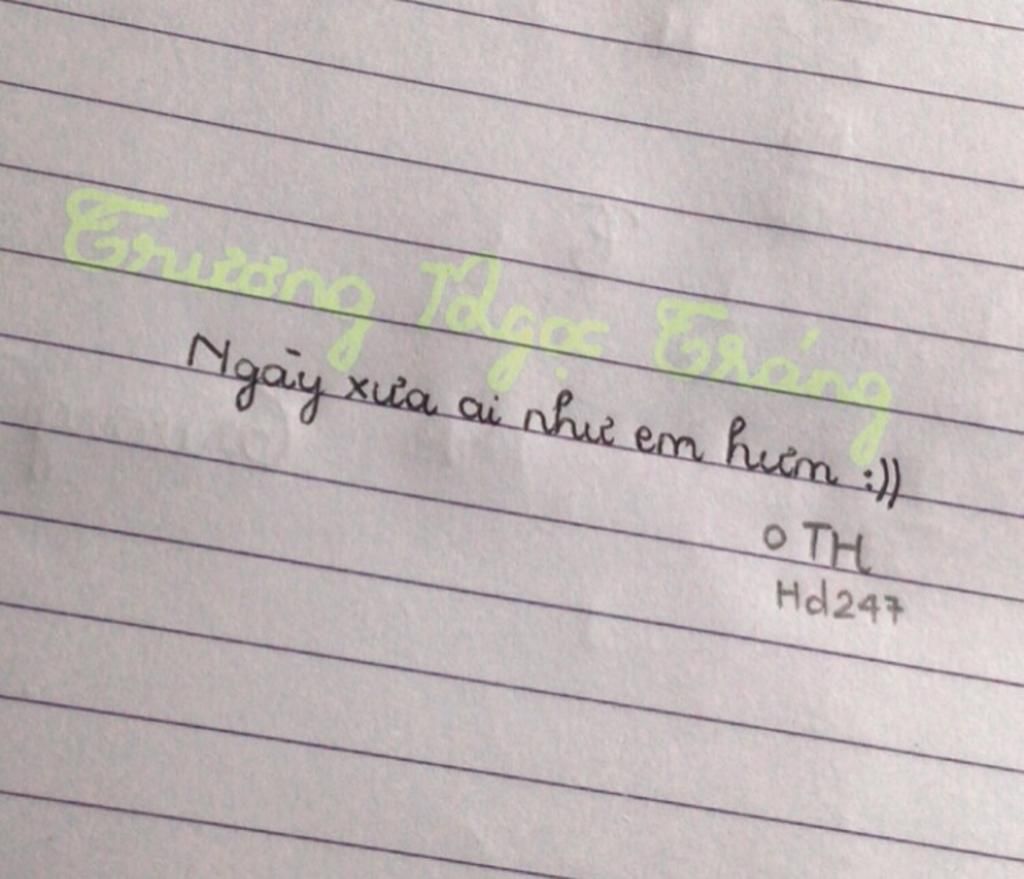 Trương Ngọc Tráng
Ngày xưa ai như em hưm :))
o TH
Hd247